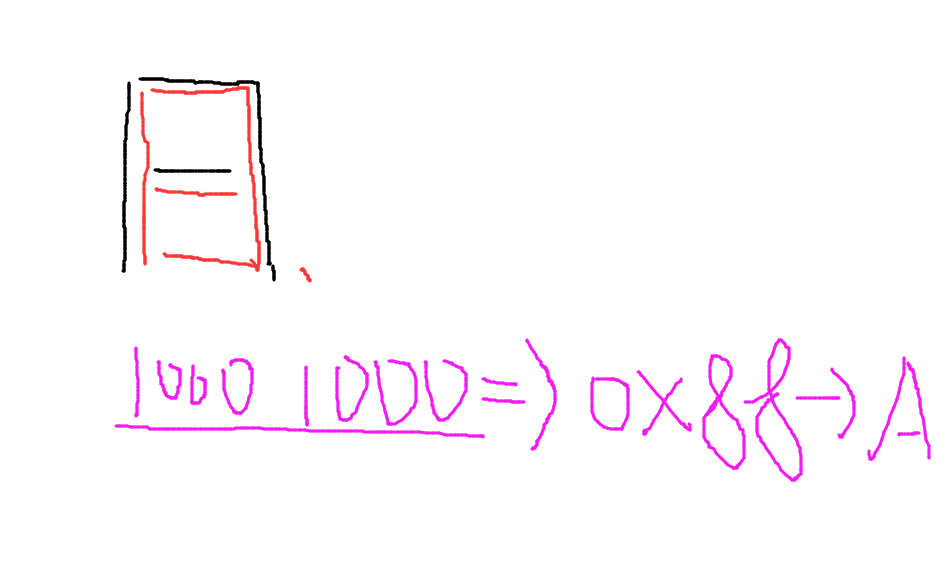 1000 1000 => 0x88 -> A